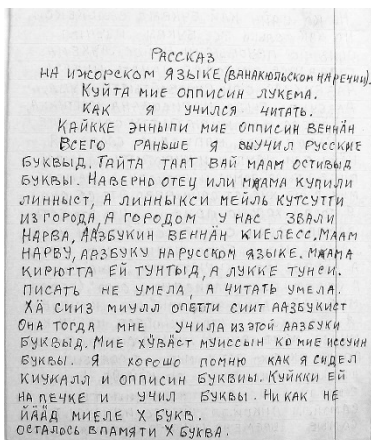 РАССКАЗ
НА ИЖОРСКОМ ЯЗЫКЕ (ВАНАКЮЛЬСКОМ НАРЕЧИИ).
КУЙТА МИЕ ОППИСИН ЛУКЕМА.
КАК Я УЧИЛСЯ ЧИТАТЬ.
КАЙККЕ ЭННЫПИ МИЕ ОППИСИН ВЕННӒН
ВСЕГО РАНЬШЕ Я ВЫУЧИЛ РУССКИЕ
БУКВЫД. ТАЙТА ТААТ ВАЙ МААМ ОСТИВЫД
БУКВЫ. НАВЕРНО ОТЕЦ ИЛИ МАМА КУПИЛИ
ЛИННЫСТ, А ЛИННЫКСИ МЕЙЛЬ КУТСУТТИ
ИЗ ГОРОДА, А ГОРОДОМ У НАС ЗВАЛИ
НАРВА, ААЗБУКИН ВЕННӒН КИЕЛЕСС. МААМ
НАРВУ, АРЗБУКУ НА РУССКОМ ЯЗЫКЕ. МАМА
КИРЮТТА ЕЙ ТУНТЫД, А ЛУККЕ ТУНСИ.
ПИСАТЬ НЕ УМЕЛА, А ЧИТАТЬ УМЕЛА.
ХӒ СИИЗ МИУЛЛ ОПЕТТИ СИИТ ААЗБУКИСТ
ОНА ТОГДА МНЕ УЧИЛА ИЗ ЭТОЙ ААЗБУКИ
БУКВЫД. МИЕ ХӰВӒСТ МУИССЫН КО МИЕ ИССУИН
БУКВЫ. Я ХОРОШО ПОМНЮ КАК Я СИДЕЛ
КИУКАЛЛ И ОППИСИН БУКВИЫ. КУЙККИ ЕЙ
НА ПЕЧКЕ И УЧИЛ БУКВЫ. НИ КАК НЕ
ЙӒӒД МИЕЛЕ Х БУКВ.
ОСТАЛОСЬ В ПАМЯТИ Х БУКВА.